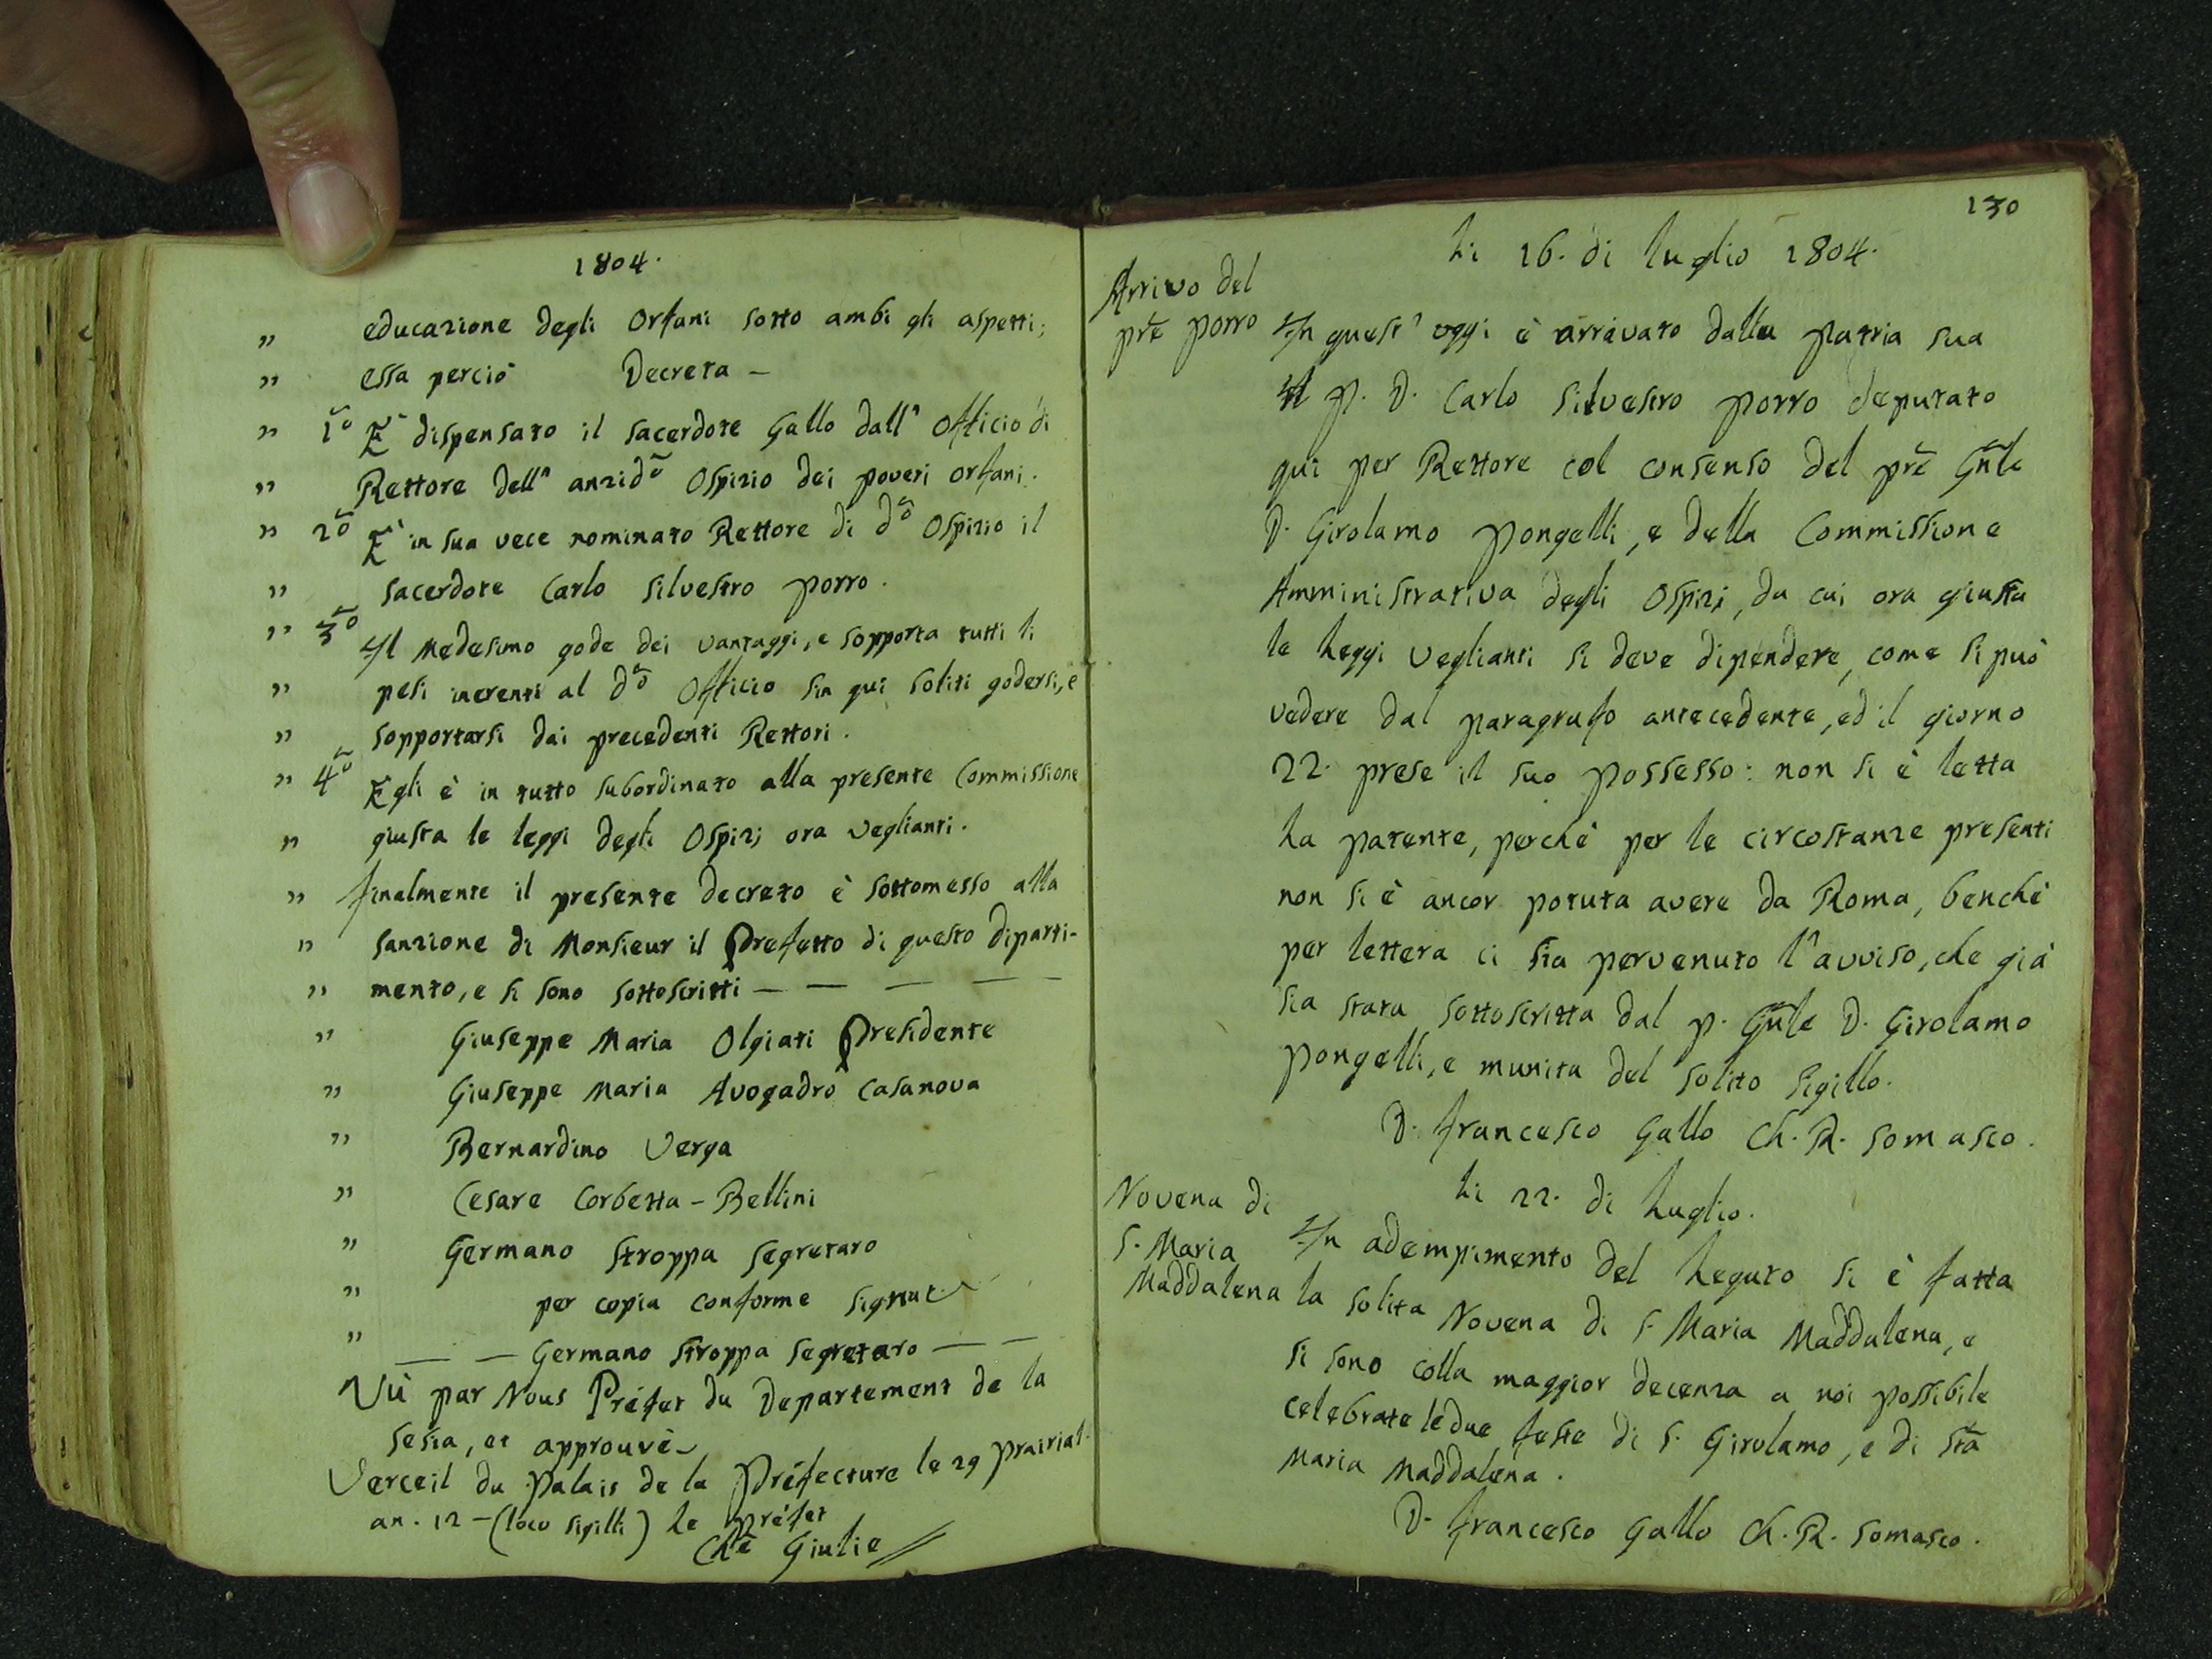 1804.
" educazione degli Orfani sotto ambi gli aspetti;
" essa perciò Decreta –
" 1º E' dispensato il sacerdote Gallo dall' Officio di
" Rettore dell' anzidº Ospizio dei poveri orfani.
" 2º E' in sua vece nominato Rettore di dº Ospizio il
" sacerdote Carlo Silvestro Porro.
" 3º Il Medesimo gode dei vantaggi, e sopporta tutti li
" pesi inerenti al dº Officio sin qui soliti godersi, e
" sopportarsi dai precedenti Rettori.
" 4º Egli è in tutto subordinato alla presente Commissione
" giusta le leggi degli Ospizj ora veglianti.
" finalmente il presente decreto è sottomesso alla
" sanzione di Monsieur il Prefetto di questo diparti-
" mento, e si sono sottoscritti — — — — —
" Giuseppe Maria Olgiati Presidente
" Giuseppe Maria Avogadro Casanova
" Bernardino Verga
" Cesare Corbetta – Bellini
" Germano Stroppa Segretaro
" per copia conforme signat
" — — Germano Stroppa Segretaro — —
Vù par Nous Préfet du Departement de la
Sesia, et approuvé
Verceil du Palais de la Préfecture le 29 prairial.
an. 12 – (loco sigilli) Le préfet
Chẽ Giulie
130
Li 16. di luglio 1804.
Arrivo del
prẽ Porro
In quest' oggi è arrivato dalla Patria sua
il P. D. Carlo Silvestro Porro deputato
qui per Rettore col consenso del prẽ Gñle
D. Girolamo Pongelli, e della Commissione
Amministrativa degli Ospizj, da cui ora giusta
le Leggi Veglianti si deve dipendere, come si può
vedere dal paragrafo antecedente, ed il giorno
22. prese il suo possesso: non si è letta
La patente, perchè per le circostanze presenti
non si è ancor potuta avere da Roma, benchè
per lettera ci sia pervenuto l'avviso, che già
sia stata sottoscritta dal p. Gñle D. Girolamo
Pongelli, e munita del solito Sigillo.
D. Francesco Gallo Ch. R. Somasco.
Li 22. di Luglio.
Novena di
S. Maria
Maddalena
In adempimento del Legato si è fatta
la solita Novena di S. Maria Maddalena, e
si sono colla maggior decenza a noi possibile
celebrate le due feste di S. Girolamo, e di Stã
Maria Maddalena.
D. Francesco Gallo Ch. R. Somasco.